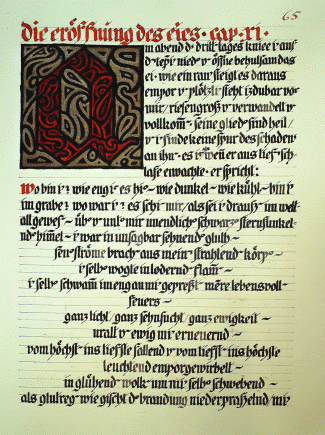 65
die eröffnung des eies · cap · xi ·
Am abend d· dritt· tages kniee i· auf
d· tepi· nied· v· öffne behutsam das
ei· wie ein rau· steigt es daraus
empor v· plötzli· steht izdubar vor
mir/ riesengroß v· verwandelt v
vollkom̄· seine glied· sind heil/
v· i· finde keine spur des schaden·
an ihn· es i· wen̄ er aus tief· sch-
lafe erwachte· er spricht:
wo bin i·? wie eng i· es hi· wie dunkel· wie kühl· bin i·
im grabe? wo war i·? es schi· mir/ als sei i· drauß· im welt
all gewes· üb· v· unt· mir unendlich schwarz· sternfunkel-
nd· him̄el· i· war in unsagbar sehnend· gluth·
feu·ströme brach· aus mein· strahlend· körp·
i· selb· wogte in lodernd· flam̄·
i· selb· schwam̄ in eng an mi· gepreßt· mere lebensvoll·
feuers·
ganz licht/ ganz sehnsucht/ ganz ewigkeit·
uralt v· ewig mi· erneuernd·
vom höchst· ins tiefste fallend v· vom tiefst· ins höchste
leuchtend emporgewirbelt·
in glühend· wolk· um mi· selbs· schwebend·
als glutreg· wie gischt d· brandung niederpraßelnd mi·